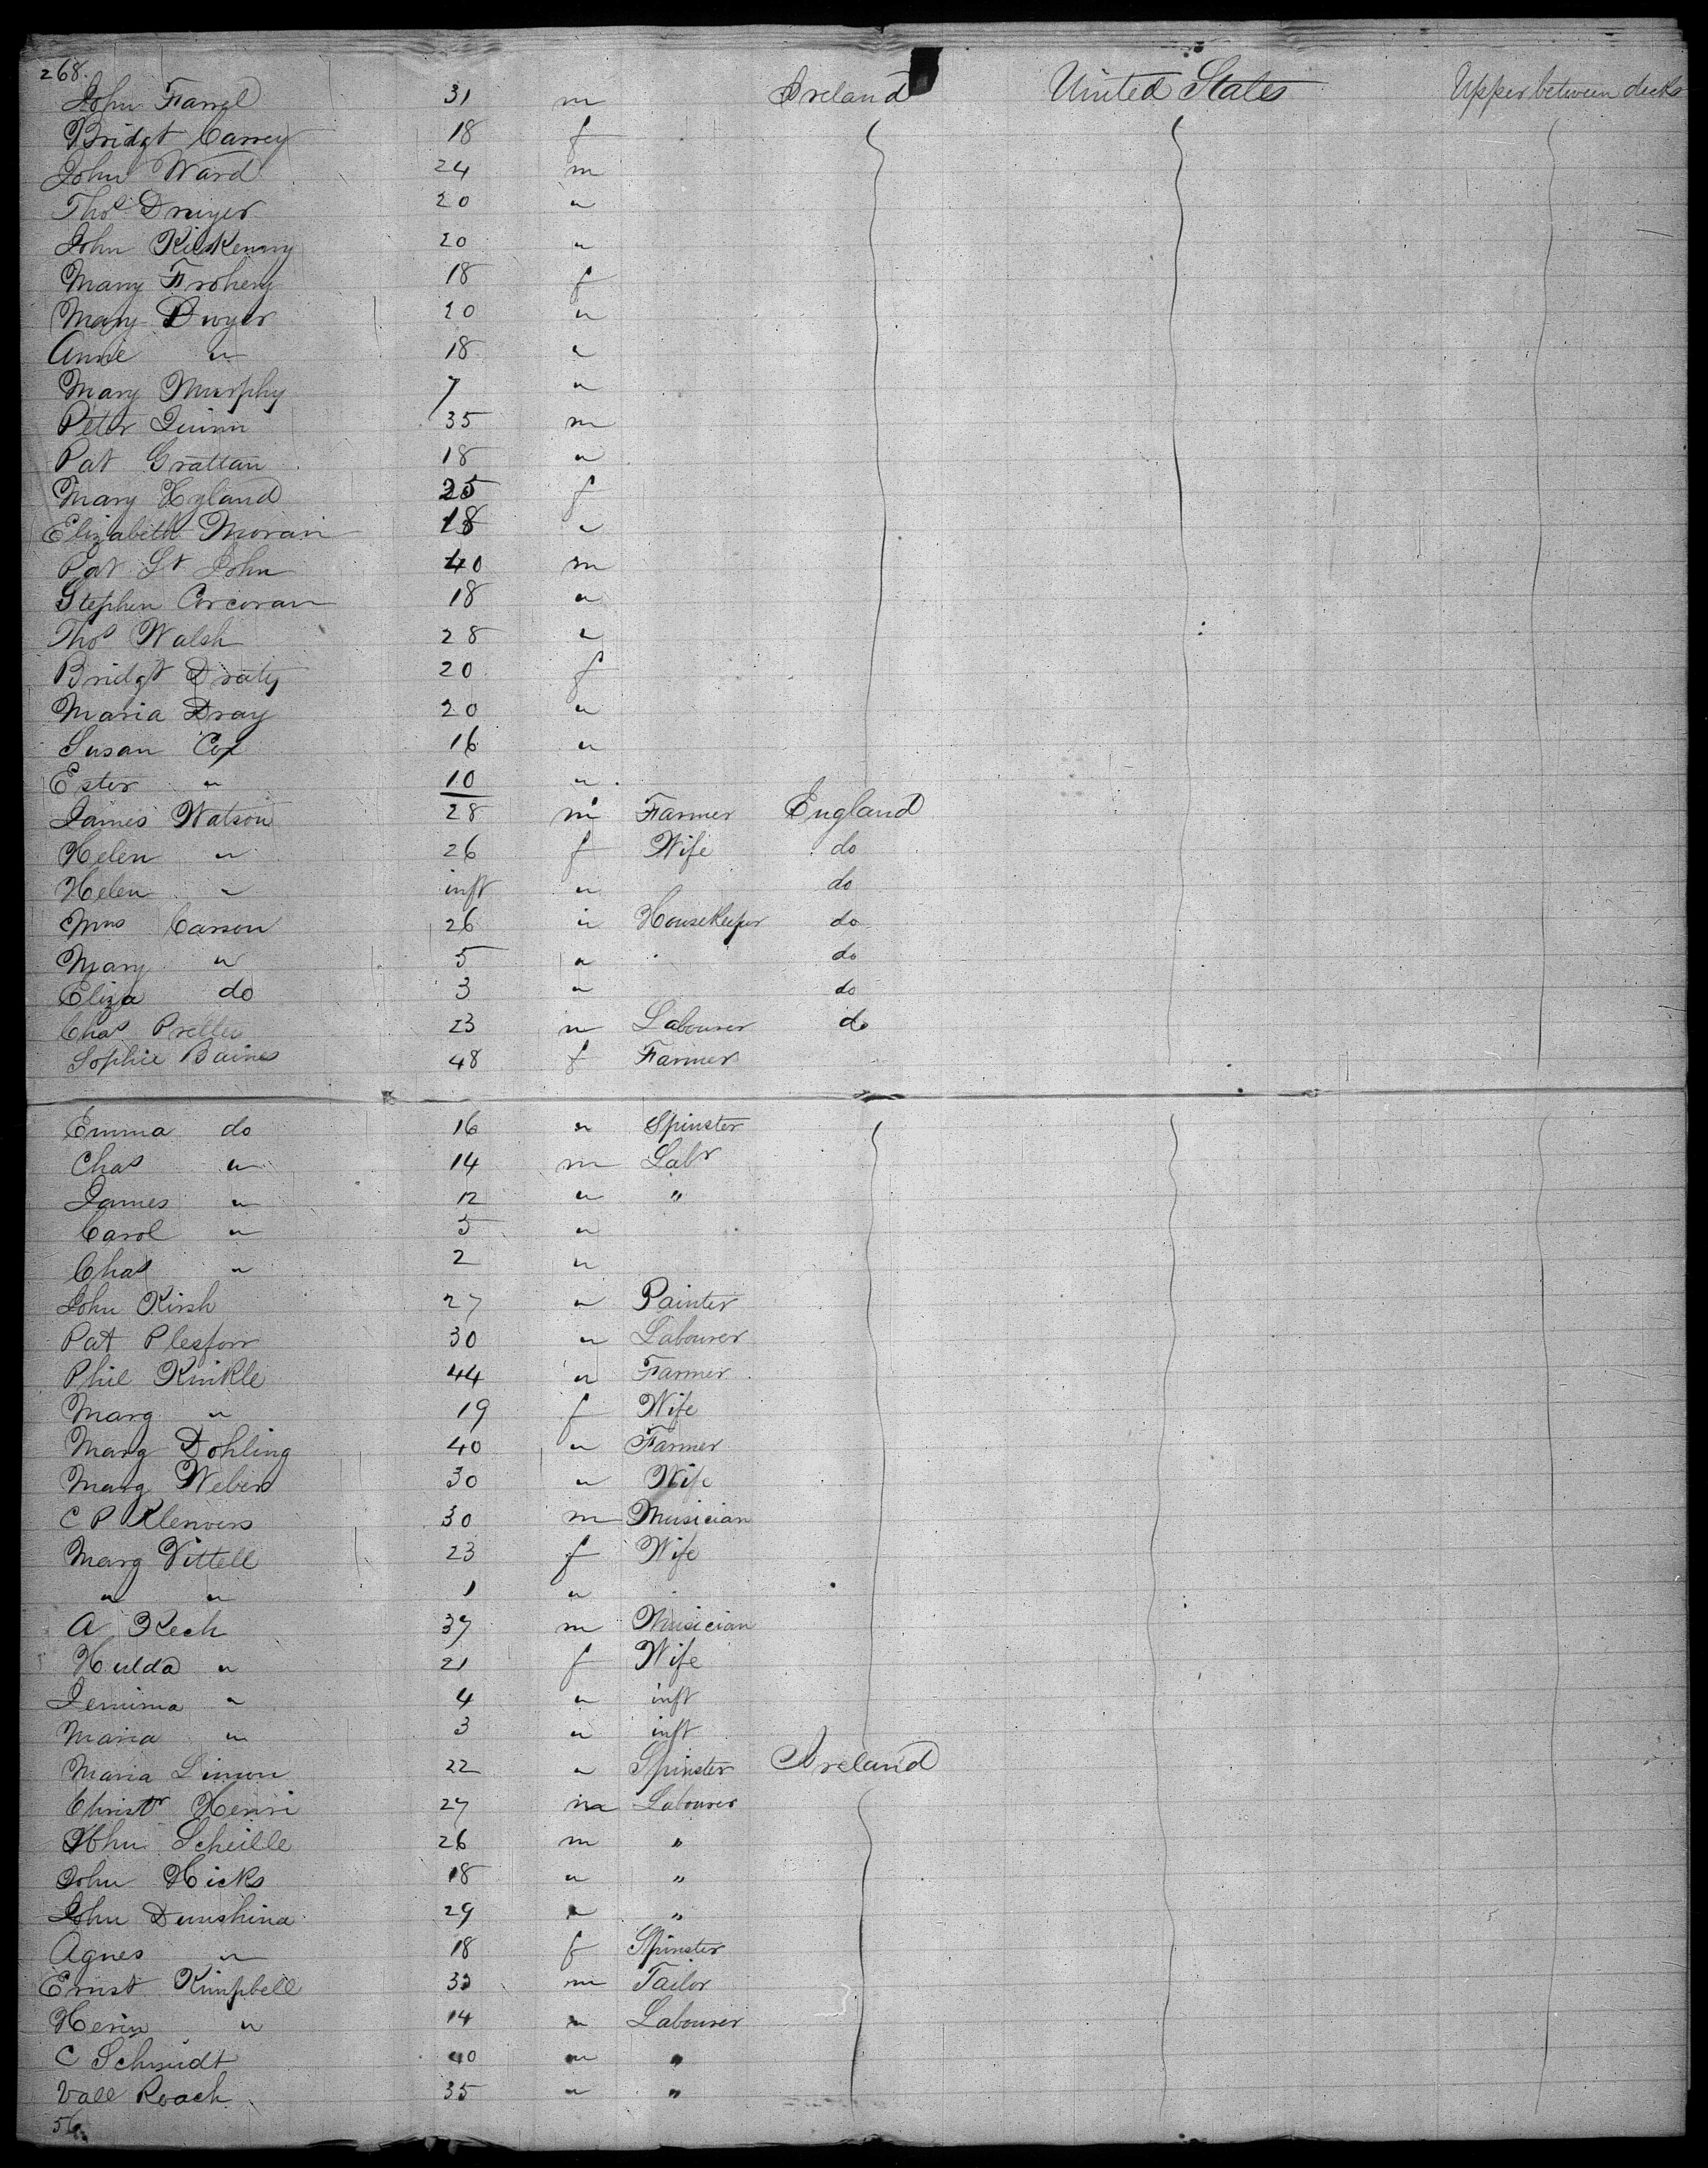 268.
John Farrel 31 m Ireland United States Upper between decks
Bridgt Carrey 18 f
John Ward 24 m
Thos 20 "
John Kilkenny 20 "
Mary Froheny 18 f
Mary Dwyer 20 "
Anne " 18 "
Mary Murphy 7 "
Peter Quinn 35 m
Pat Grattan 18 "
Mary Hyland 25 f
Elizabeth Moran 18 "
Pat St John 40 m
Stephen Corcoran 18 "
Thos Walsh 28 "
Bridgt Draty 20 f
Maria Dray 20 "
Susan Cox 16 "
Ester " 10 "
James Watson 28 m Farmer England
Helen " 26 f Wife do
Helen " inft " do
Mrs Carson 26 " Housekeeper do
Mary " 5 " do
Eliza do 3 " do
Chas 23 m Labourer do
Sophie Baines 48 f Farmer
Emma do 16 " Spinster
Chas " 14 m Labr
James " 12 " "
Carol " 5 "
Chas " 2 "
John Kirsh 27 " Painter
Pat 30 " Labourer
Phil Kinkle 44 " Farmer
Marg " 19 f Wife
Marg Dohling 40 " Farmer
Marg Webers 30 " Wife
C P Klenvers 30 m Musician
Marg Vittell 23 f Wife
" " 1 "
A Kech 37 m Musician
Hulda " 21 f Wife
Jemima " 4 " inft
Maria " 3 " inft
Maria Simon 22 " Spinster Ireland
Christr Henri 27 m Labourer
John Scheille 26 m "
John Hicks 18 " "
John Dunshina 29 " "
Agnes " 18 f Spinster
Ernst Kimpbell 33 m Tailor
" 14 " Labourer
C Schmidt 40 m "
Vall Roach 35 " "
56